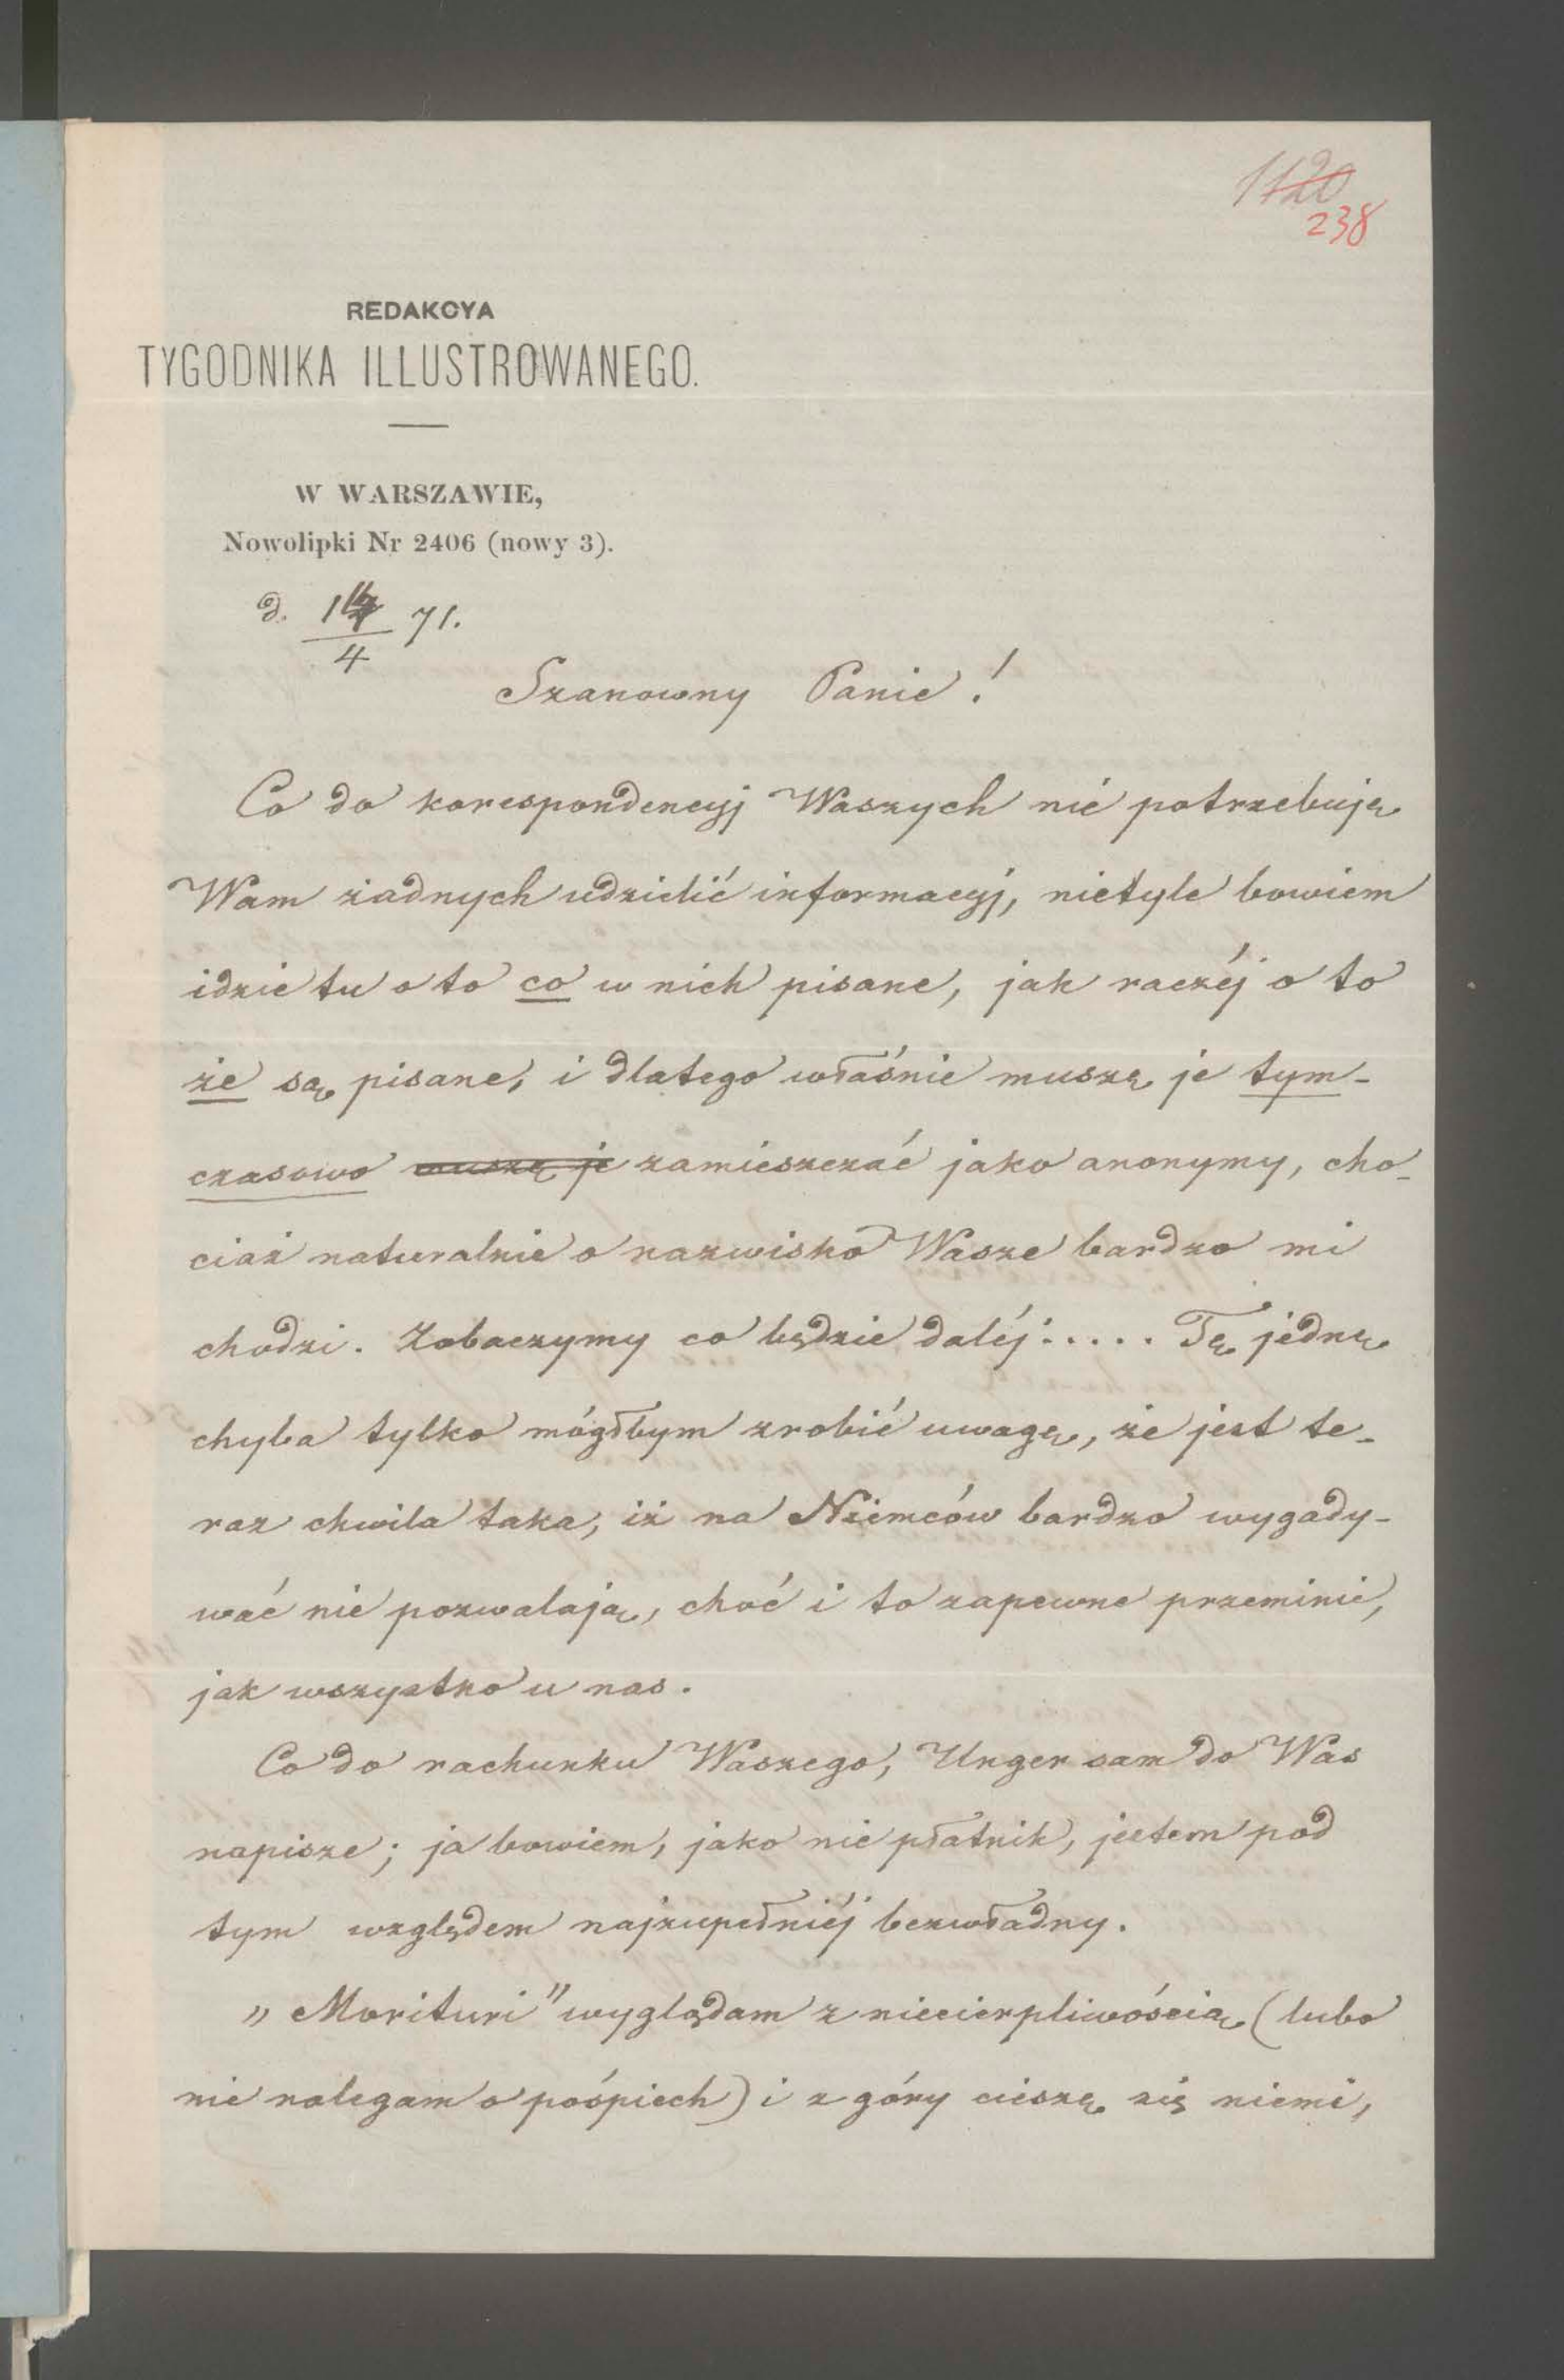 1120
238
REDAKCYA
TYGODNIKA ILLUSTROWANEGO.
W WARSZAWIE,
Nowolipki Nr 2406 (nowy 3).
d. 4 71.
Szanowny Panie!
Co do korespondencyj Waszych nie potrzebuję
Wam żadnych udzielić informacyj, nietyle bowiem
idzie tu o to co w nich pisane, jak raczéj o to
że są pisane, i dlatego właśnie muszę je tym-
czasowo muszę je zamieszczać jako anonymy, cho-
ciaż naturalnie o nazwisko Wasze bardzo mi
chodzi. Zobaczymy co będzie daléj..... Tę jednę
chyba tylko mógłbym zrobić uwagę, że jest te-
raz chwila taka, iż na Niemców bardzo wygady-
wać nie pozwalają, choć i to zapewne przeminie,
jak wszystko u nas.
Co do rachunku Waszego, Unger sam do Was
napisze; ja bowiem, jako nie płatnik, jestem pod
tym względem najzupełniéj bezwładny.
„Morituri" wyglądam z niecierpliwością (lubo
nie nalegam o pośpiech) i z góry cieszę się niemi,